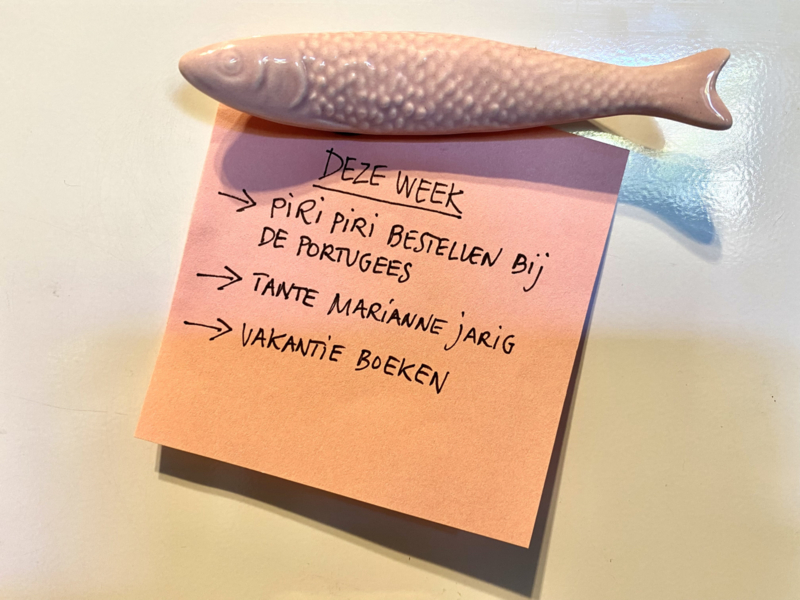 DEZE WEEK
→ PIRI PIRI BESTELLEN BIJ
DE PORTUGEES
→ TANTE MARIANNE JARIG
→ VAKANTIE BOEKEN